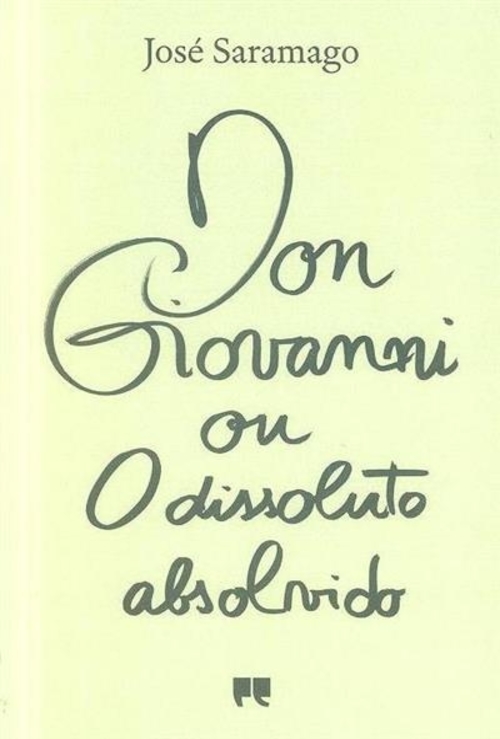 José Saramago
Don
Giovanni
ou
O dissoluto
absolvido